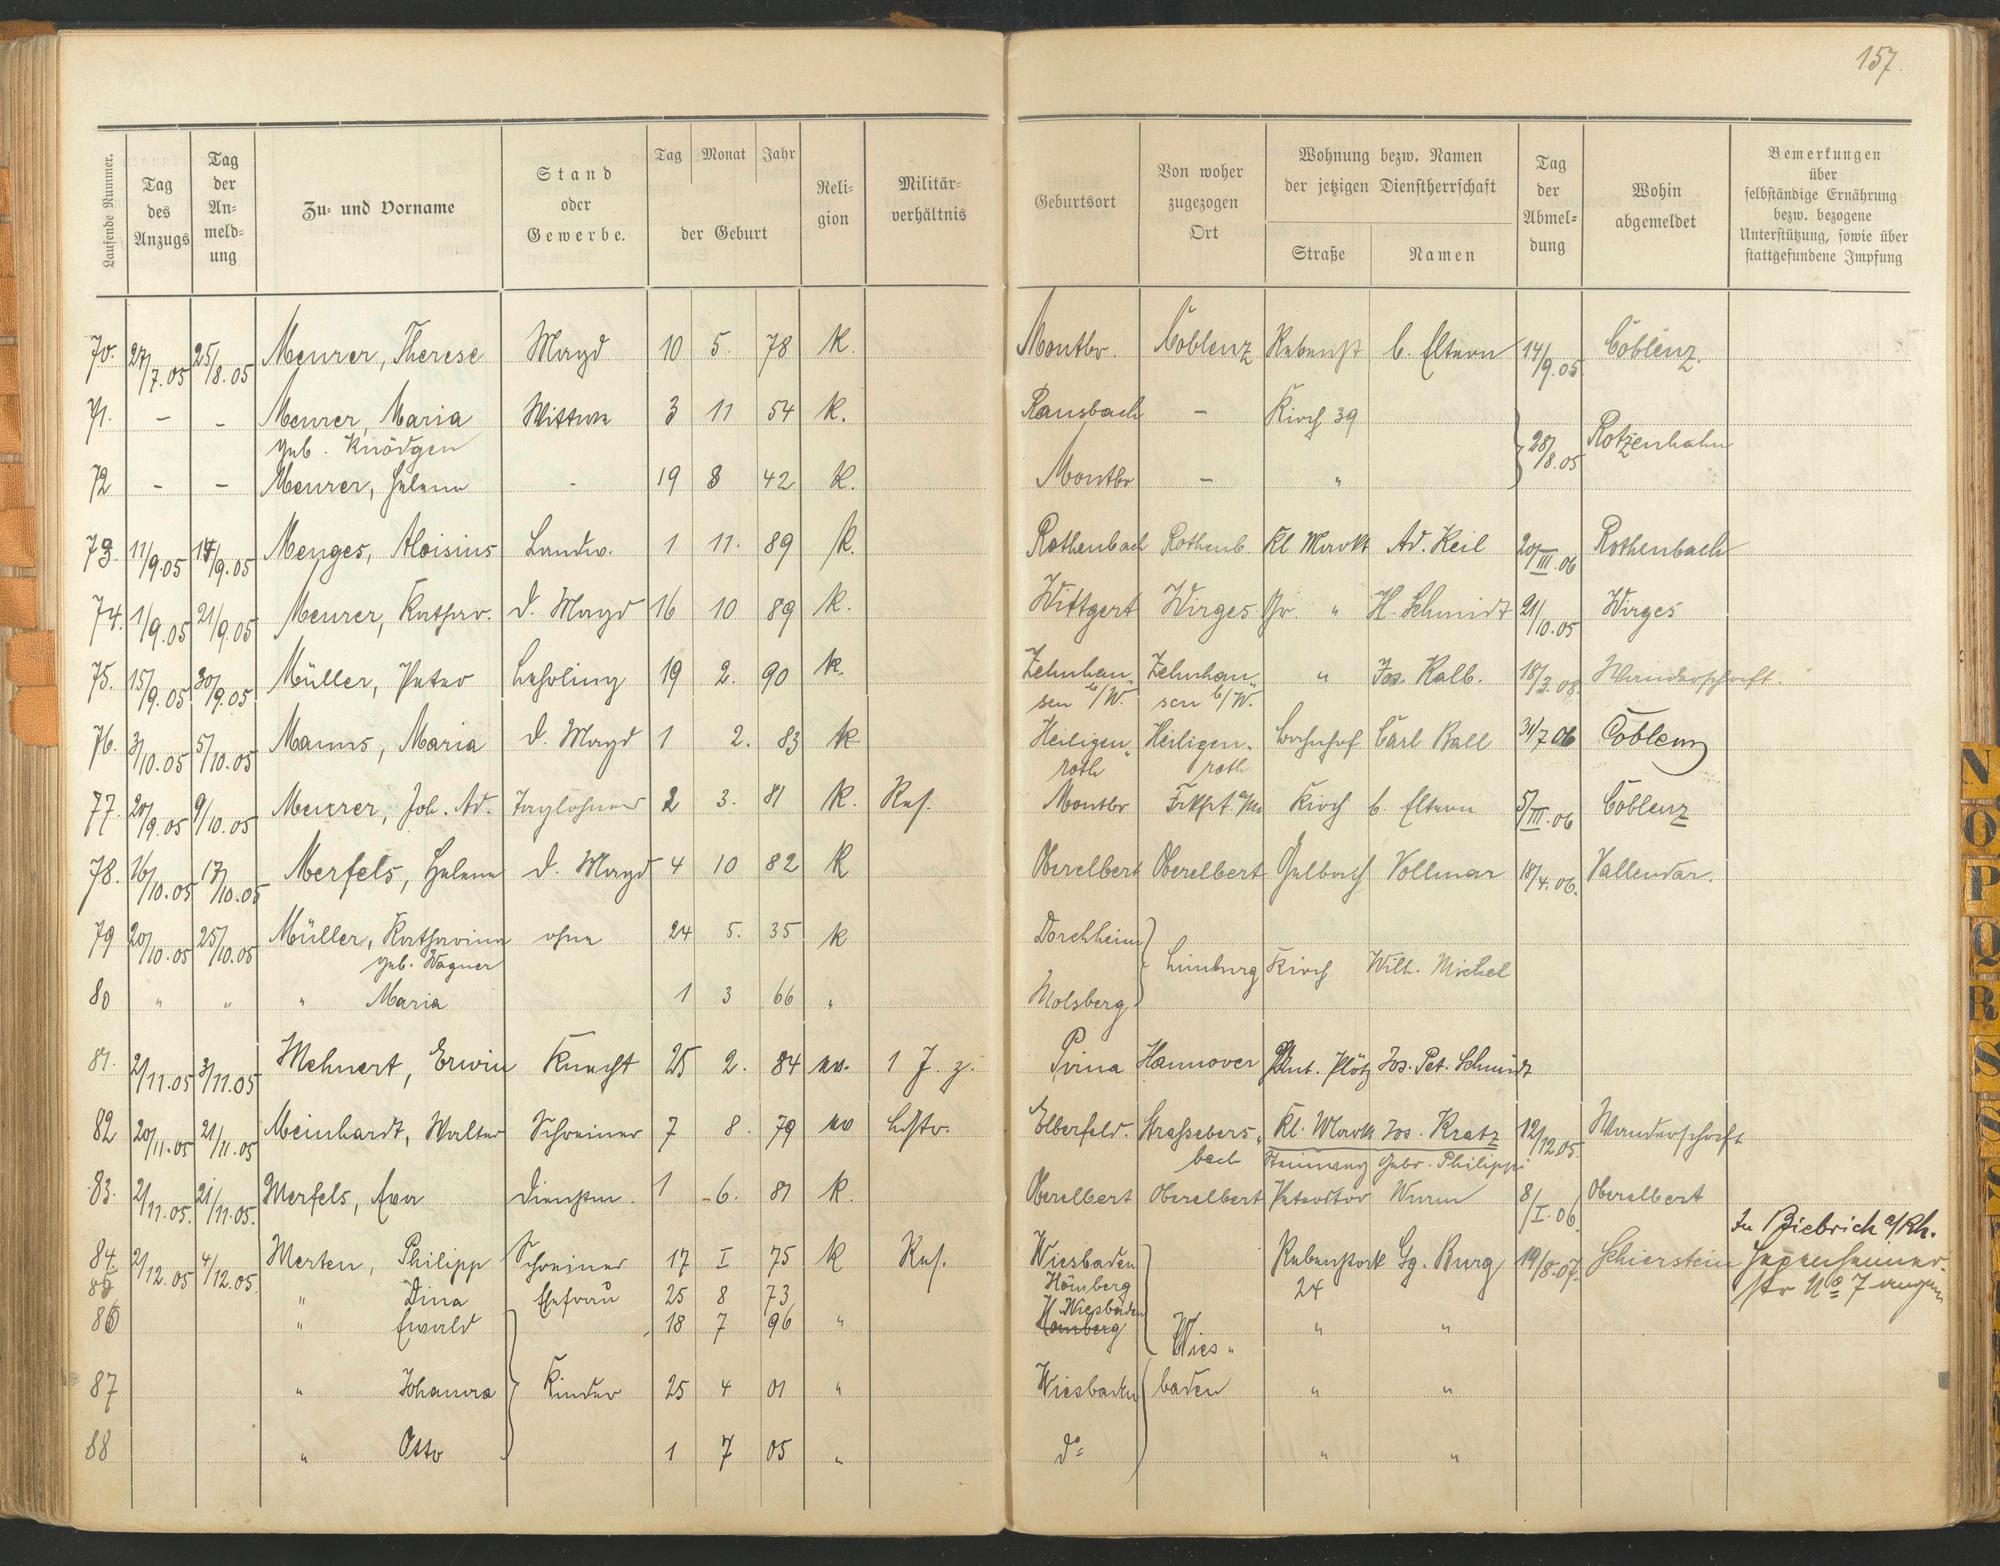 157.
Laufende Nummer.
Tag des Anzugs
Tag der An- meld- ung
Zu- und Vorname
Stand oder Gewerbe.
Tag Monat Jahr
der Geburt
Reli- gion
Militär- verhältnis
Geburtsort
Von woher zugezogen Ort
Wohnung bezw. Namen der jetzigen Dienstherrschaft
Straße Namen
Tag der Abmel- dung
Wohin abgemeldet
Bemerkungen über selbständige Ernährung bezw. bezogene Unterstützung, sowie über stattgefundene Impfung
70. 27/7.05 25/8.05 Meurer, Therese Magd 10 5. 78 K. Montbr. Coblenz Rebenst b. Eltern 14/9.05 Coblenz.
71. – – Meurer, Maria Wittwe 3 11 54 K. Ransbach – Kirch 39
geb. Knödgen } 28/8.05 Rotzenhahn
72 – – Meurer, Helene - 19 8 42 K. Montbr – "
73. 11/9.05 14/9.05 Menges, Aloisius Landw. 1 11. 89 K. Rothenbach Rothenb. Kl Markt Ad. Keil 20/III.06 Rothenbach
74. 1/9.05 21/9.05 Meurer, Kathar. d. Magd 16 10 89 K. Wittgert Wirges Gr. " H. Schmidt 21/10.05 Wirges
75. 15/9.05 30/9.05 Müller, Peter Lehrling 19 2. 90 K. Zehnhau- Zehnhau- " Jos. Kalb. 18/3.08 Wanderschaft.
sen b/W. sen b/W.
76. 3/10.05 5/10.05 Manns, Maria d. Magd 1 2. 83 K Heiligen- Heiligen- Bahnhof Carl Kall 31/7 06 Coblenz
roth roth
77. 20/9.05 9/10.05 Meurer, Joh. Ad. Taglöhner 2 3. 81 K. Res. Montbr Frkfrt a/M Kirch b. Eltern 5/III.06 Coblenz
78. 16/10.05 17/10.05 Merfels, Helene d. Magd 4 10 82 K Oberelbert Oberelbert Gelbach Vollmar 18/4.06. Vallendar.
79 20/10.05 25/10.05 Müller, Katharina ohne 24 5. 35 K Dorchheim
geb. Wagner } Limburg Kirch Wilh. Nickel
80 " " " Maria 1 3 66 " Molsberg
81. 2/11.05 3/11.05 Mehnert, Erwin Knecht 25 2. 84 ev. 1 J. z. Pirna Hannover Plötz Jos. Pet. Schmidt
82 20/11.05 21/11.05 Meinhardt, Walter Schreiner 7 8. 79 ev Ldstr. Elberfeld. Strassebers- Kl. Markt Jos. Kratz 12/12.05. Wanderschaft
bach Steinweg Gebr. Philippi
83. 2/11.05. 21/11.05. Merfels, Eva Dienstm. 1 6. 81 K. Oberelbert Oberelbert Peterstor Wurm 8/I.06 Oberelbert
84. 2/12.05 4/12.05. Merten, Philipp Schreiner 17 I 75 K Res. Wiesbaden Rebenstock Gg. Burg 19/8.07. Schierstein In Biebrich a/Rh.
85 " Dina Ehefrau 25 8 73 Homberg 24 str No 7
86 " Ewald 18 7 96 " Wiesbaden Homberg Wies- " "
87 " Johanna } Kinder 25 4 01 " Wiesbaden baden " "
88 " Otto 1 7 05 " do " "
N
O
P
Q
R
S